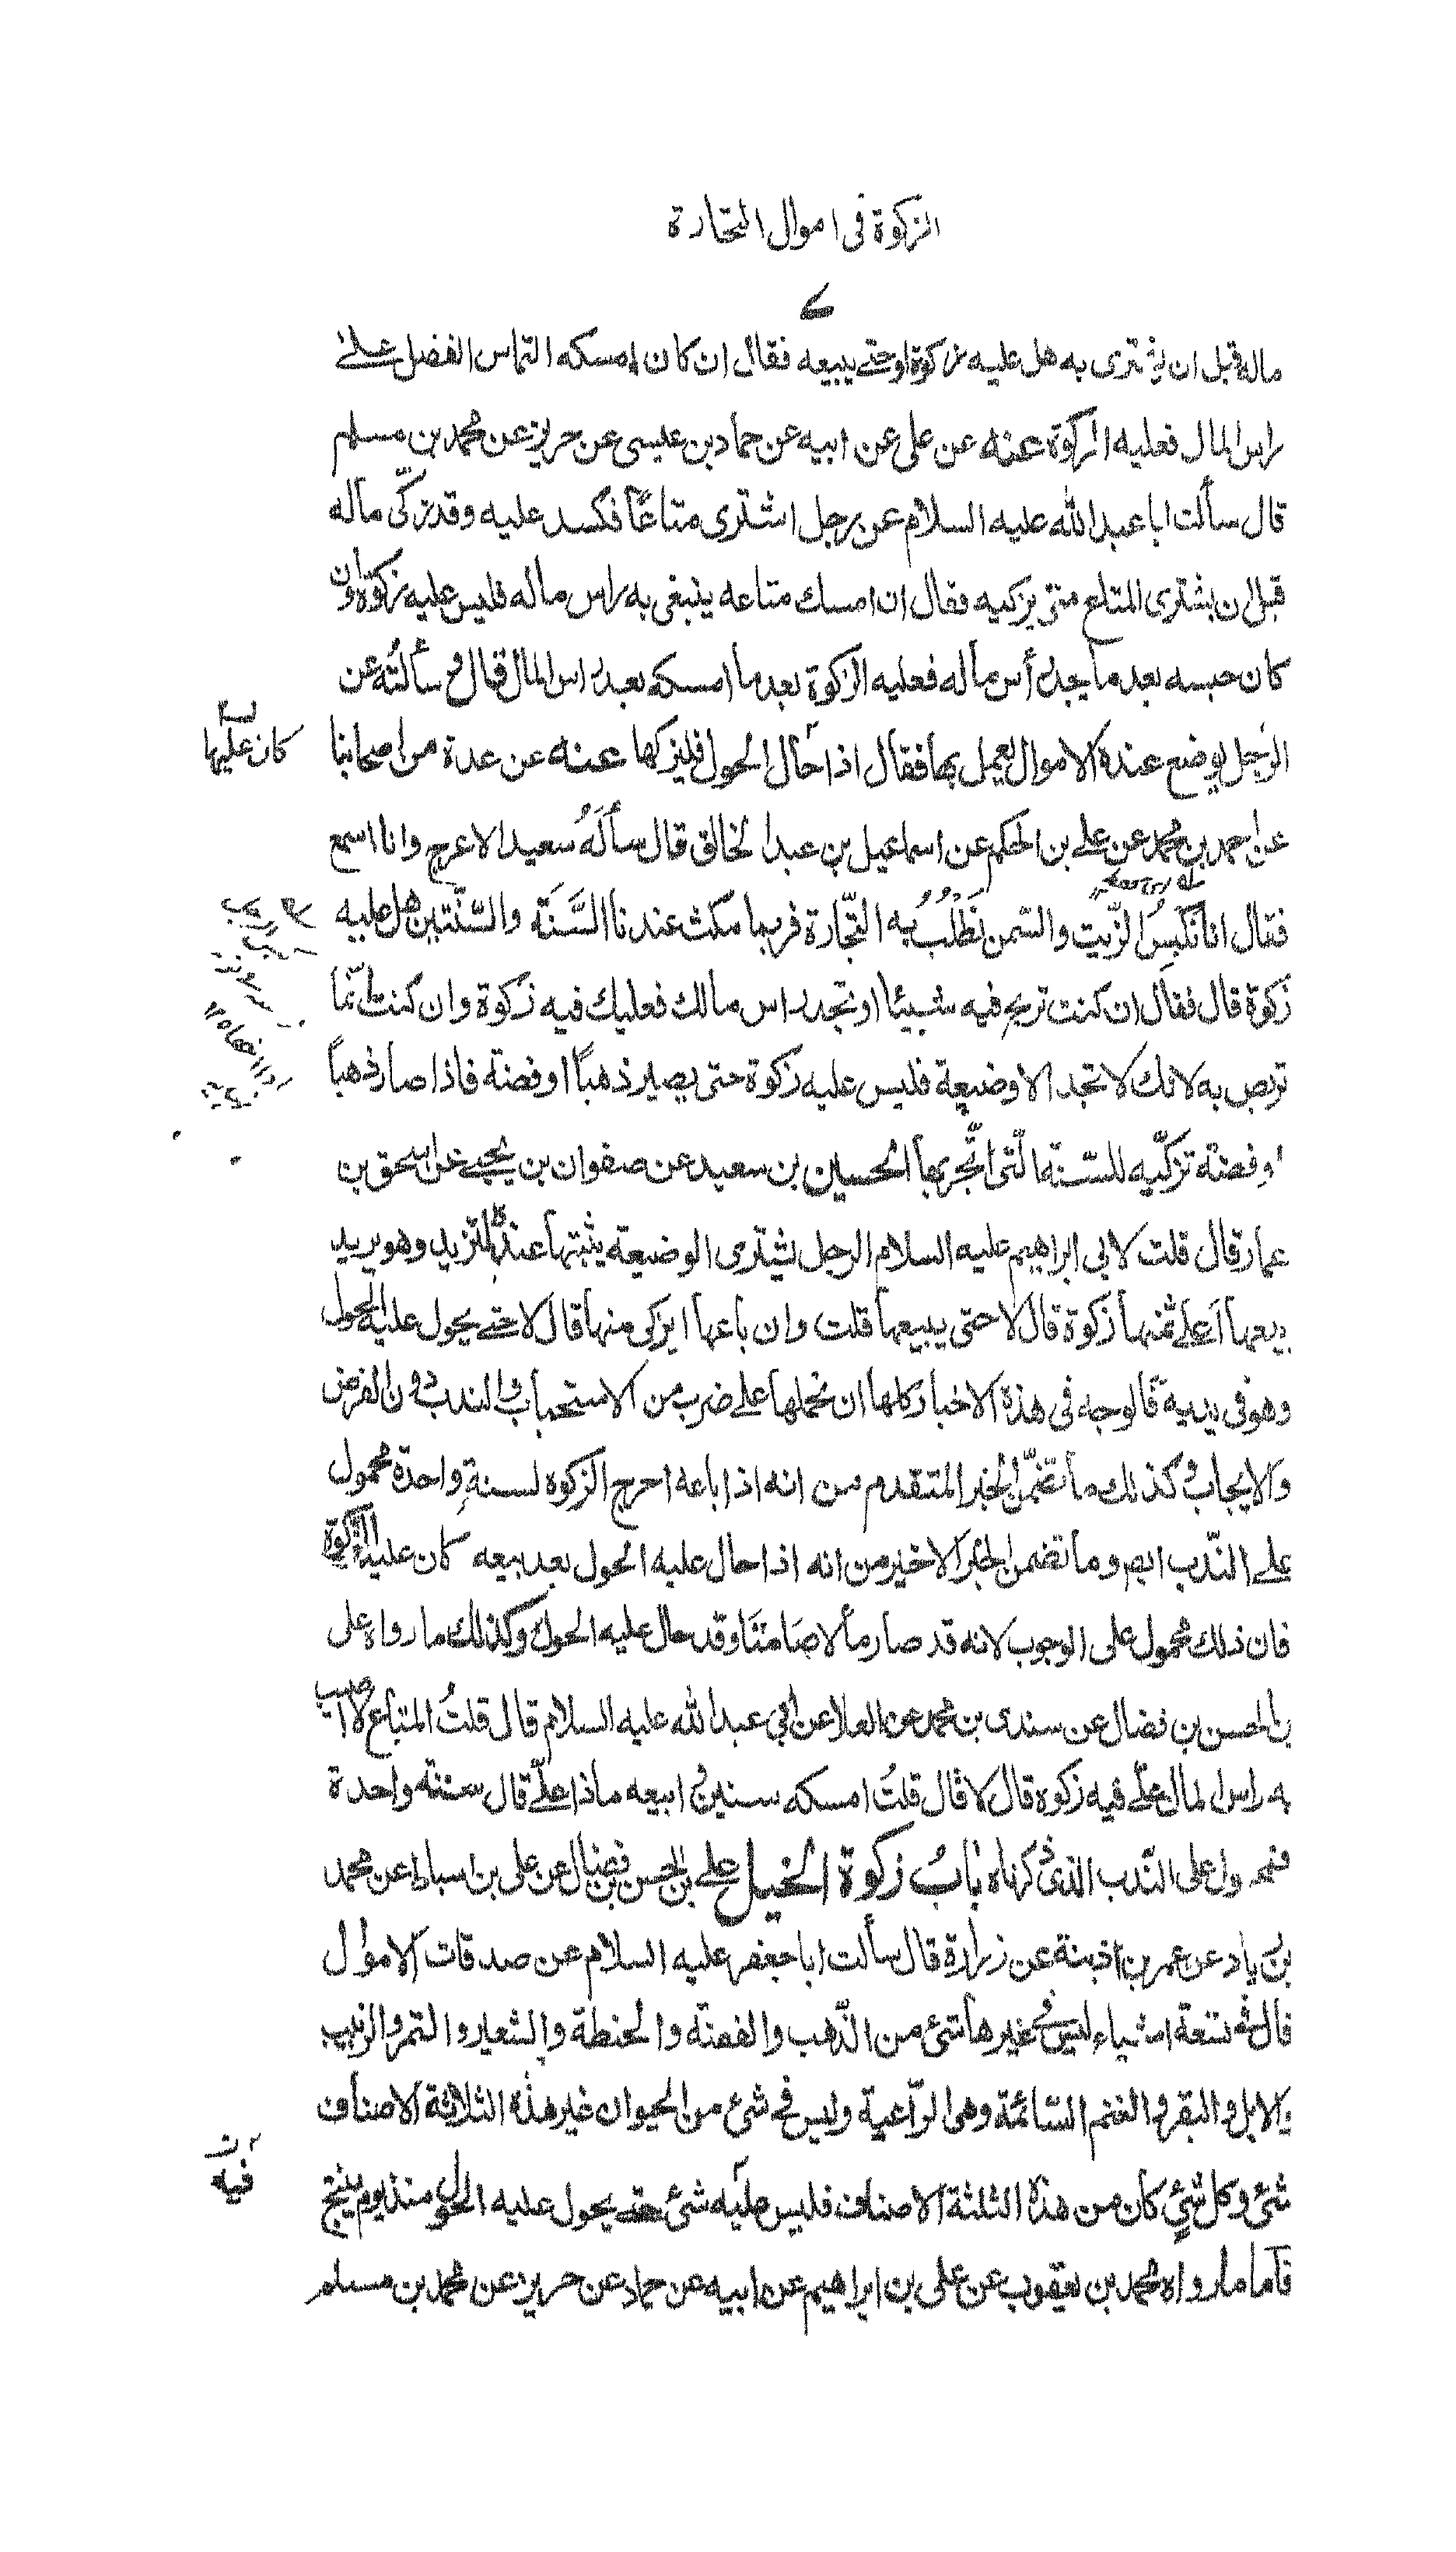 الزكوة فى اموال التجارة
ماله قبل ان يشترى به هل عليه زكوة او حتى يبيعه فقال ان كان امسكه التماس الفضل على
راس المال فعليه الزكوة عنه عن على عن ابيه عن حماد بن عيسى عن حريز عن محمد بن مسلم
قال سألت ابا عبد الله عليه السلام عن رجل اشترى متاعًا فكسد عليه وقد زكّى ماله
قبل ان يشترى المتاع متى يزكيه فقال ان امسك متاعه ينبغى به راس ماله فليس عليه زكوة وان
كان حبسه بعد ما يجد رأس ماله فعليه الزكوة بعد ما امسكه بعد راس المال قال و سألتُه عن
الرجل يوضع عنده الاموال يعمل بها فقال اذا حال الحول فليزكها عنه عن عدة من اصحابنا
كان عليها
عن احمد بن محمد عن على بن الحكم عن اسماعيل بن عبد الخالق قال سأله سعيد الاعرج وانا اسمع
فقال انا نكبس الزّيت والسّمن نَطْلُبُ به التّجارة فربما مكث عندنا السَّنَة والسّنتين هل عليه
زكوة قال فقال ان كنت تربح فيه شيئا او تجد راس مالك فعليك فيه زكوة وان كنت انّما
تربص به لانك لا تجد الا وضيعة فليس عليه زكوة حتى يصير ذهبًا او فضة فاذا صار ذهبًا
او فضة تزكّيه للسّنة الّتى اتّجر بها الحسين بن سعيد عن صفوان بن يحيى عن اسحق بن
عمار قال قلت لابى ابراهيم عليه السلام الرجل يشترى الوضيعة يثبتها عنده لتزيد وهو يريد
بيعها أعلى ثمنها زكوة قال لا حتى يبيعها قلت وان باعها ايزكى منها قال لا حتى يحول عليه الحول
وهو فى يديه فالوجه فى هذه الاخبار كلها ان نحملها على ضرب من الاستحباب والندب دون الفرض
والايجاب وكذلك ما تضمّن الخبر المتقدم من انه اذا باعه اخرج الزكوة لسنةٍ واحدة محمول
على النّدب ايضا وما تضمن الخبر الاخير من انه اذا حال عليه الحول بعد بيعه كان عليه الزكوة
فان ذلك محمول على الوجوب لانه قد صار مالا صَامتًا وقد حال عليه الحول وكذلك ما رواه على
بن الحسن بن فضال عن سندى بن محمد عن العلا عن ابى عبد الله عليه السلام قال قلتُ المتاع لا اصيب
به راس المال علىّ فيه زكوة قال لا قال قلتُ امسكه سنين ثم ابيعه ماذا علىّ قال سنة واحدة
فمحمول على النّدب الذى ذكرناه بَابُ زكوة الخيل على بن الحسن بن فضال عن على بن اسباط عن محمد
بن زياد عن عمر بن اذينة عن زرارة قال سألت ابا جعفر عليه السلام عن صدقات الاموال
قال فى تسعة اشياء ليس فى غيرها شئ من الذّهب والفضة والحنطة والشعير والتمر والزبيب
والابل والبقر والغنم السّائمة وهى الرّاعية وليس فى شئ من الحيوان غير هذه الثلاثة الاصناف
فيه
شئ وكل شئ كان من هذه الثلثة الاصناف فليس عليه شئ حتى يحول عليه الحول منذ يوم ينتج
فأما ما رواه محمد بن يعقوب عن على بن ابراهيم عن ابيه عن حماد عن حريز عن محمد بن مسلم